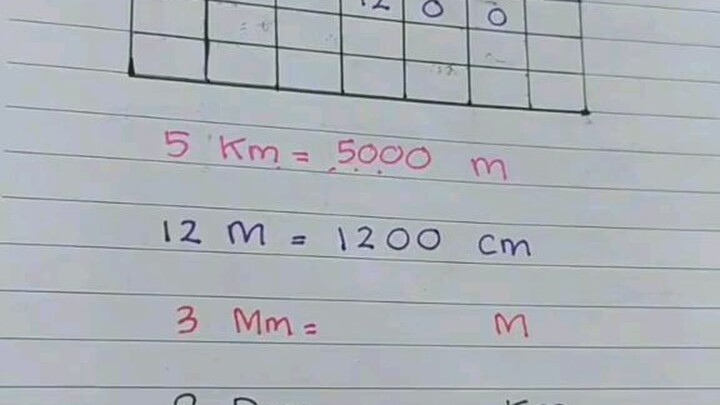 12 0 0
5 Km = 5000 m
12 M = 1200 cm
3 Mm = M